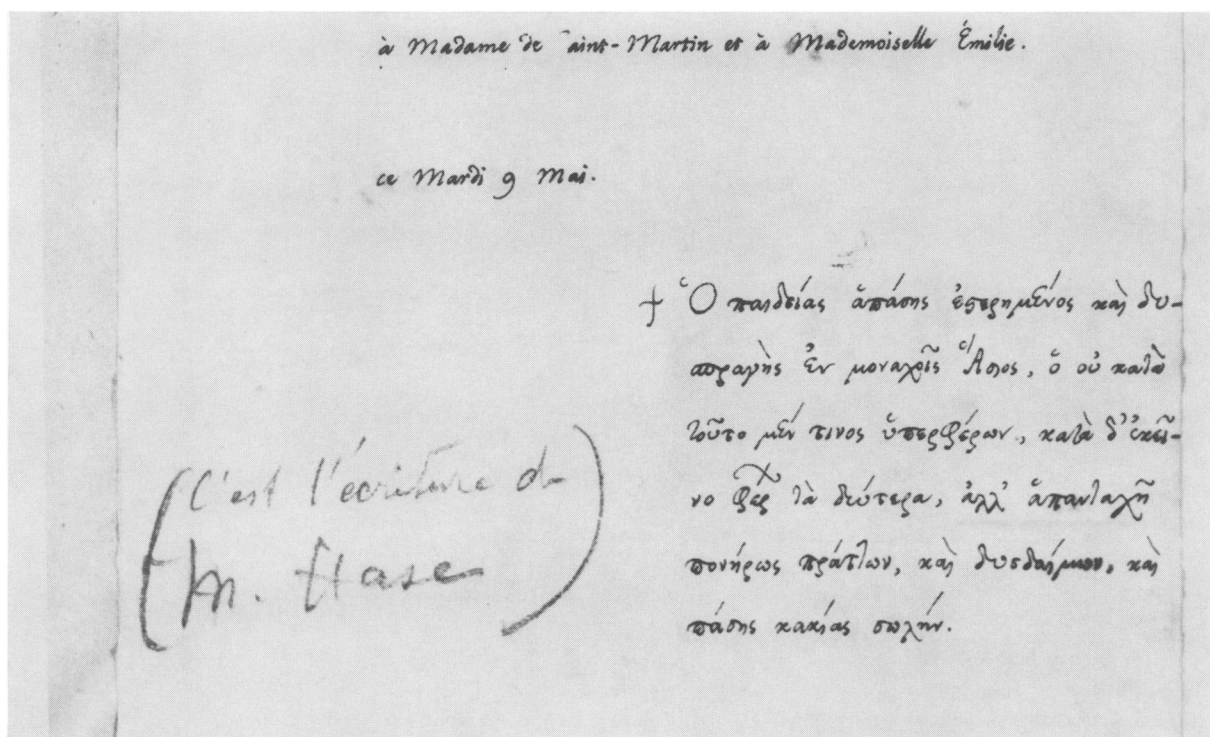 à Madame de aint-Martin et à Mademoiselle Émilie.
ce Mardi 9 Mai.
† Ὁ παιδείας ἁπάσης ἐστερημένος καὶ δυ-
σπραγὴς ἐν μοναχοῖς ὁ οὐ κατὰ
τοῦτο μέν τινος ὑπερφέρων, κατὰ δ' ἐκεῖ-
νο φέρων τὰ δεύτερα, ἀλλ' ἁπανταχῆ
πονήρως πράττων, καὶ δυσδαίμων, καὶ
πάσης κακίας σωλήν.
(C'est l'écriture de
M. Hase)